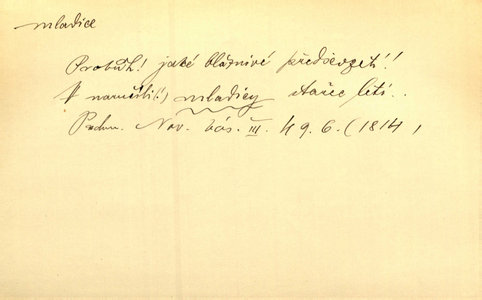 mladice
Probůh! jaké bláznivé předsevzetí!
V náručí mladicy stařec letí.
Puchm. Nov. bás. III. 49. 6. (1814)